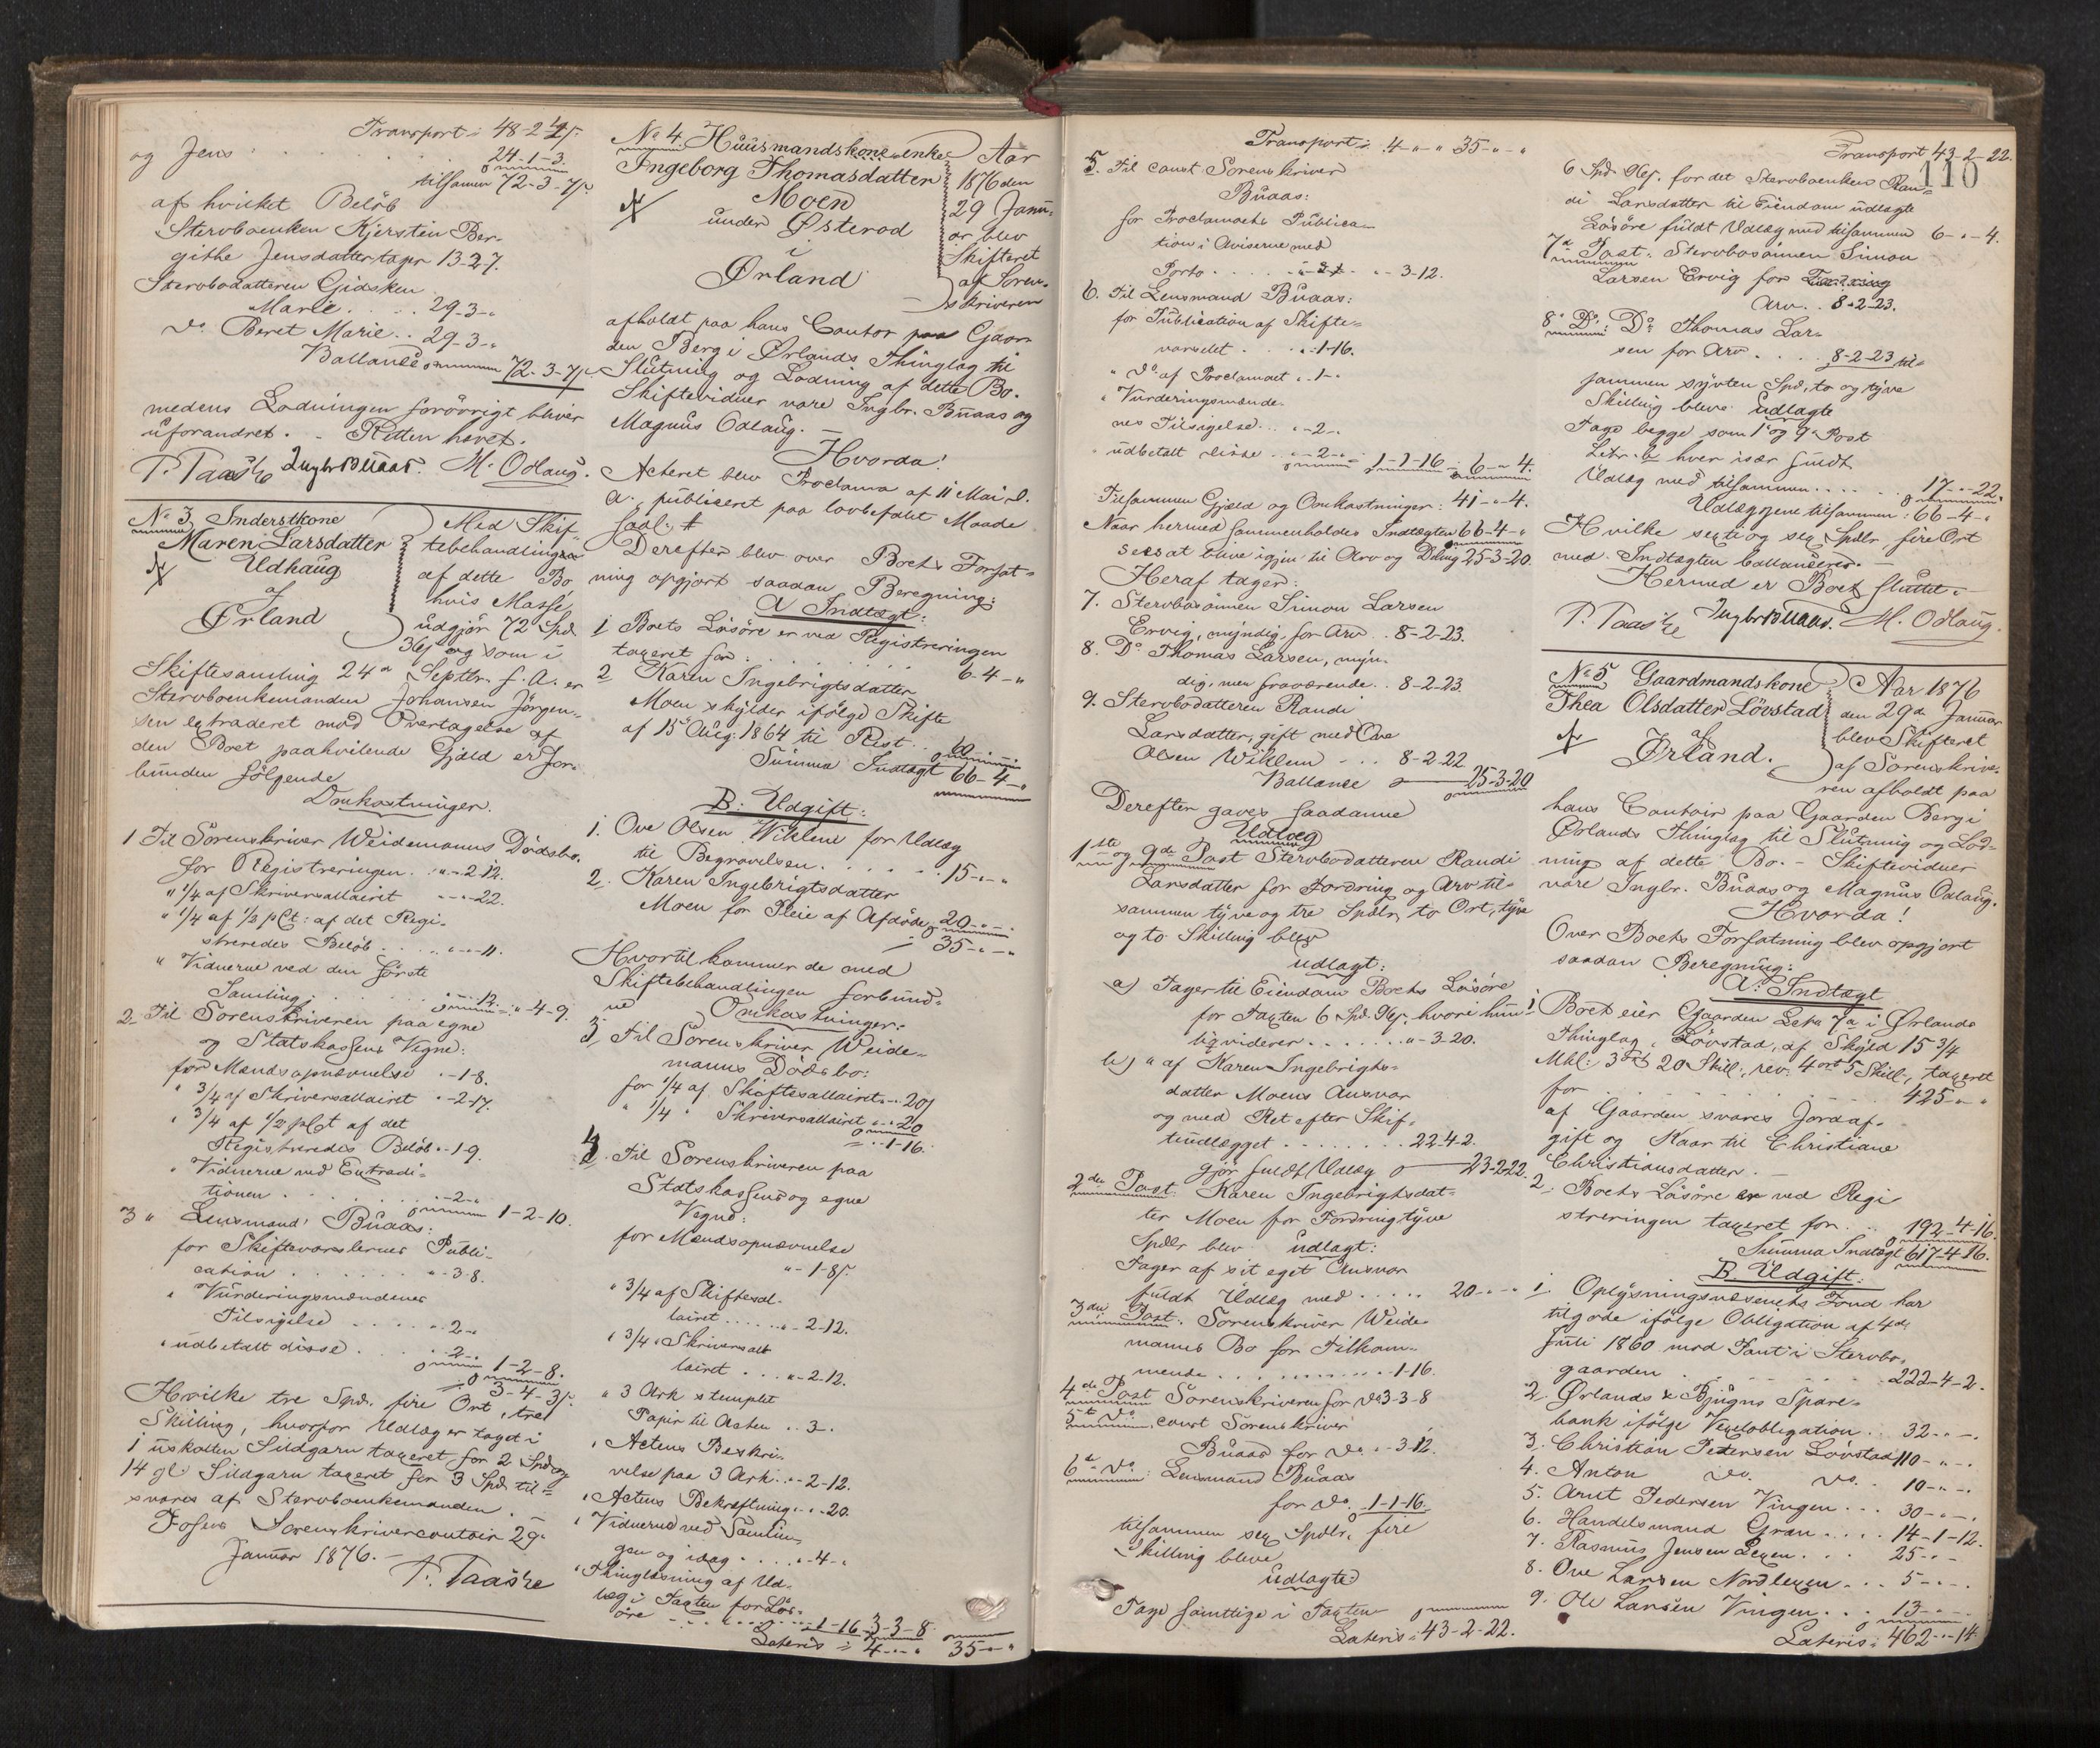 Transport: 48-2-4
og Jens . . . . . 24-1-3.
tilsammen 72-3-7.
af hvilket Beløb
Stervboenken Kjersten Ber-
githe Jensdatter tager 13-2-7.
Stervbodatteren Gidsken
Marie . . . . 29-3-"
do. Beret Marie . . 29-3-"
Ballance 72-3-7
medens Lodningen forøvrigt bliver
uforandret. - Retten hævet.
P. Taaske Ingbr Buaas. M. Odlaug.
No 3. Inderstkone
Maren Larsdatter
Udhaug
af
Ørland
Med Skif-
tebehandlingen
af dette Bo,
hvis Masse
udgjør 72 Spd
og som i
Skiftesamling 24de Septbr. f. A. er
Stervboenkemanden Johansen Jørgen-
sen extraderet mod Overtagelse af
den Boet paahvilende Gjæld er for-
bunden følgende
Omkostninger.
1 Til Sorenskriver Weidemanns Dødsbo.
for Registreringen . "-2-12.
" 1/4 af Skriversallairet "-"-22.
" 1/4 af 1/2 pCt: af det Regi-
streredes Beløb . . . "-"-11.
" Vidnerne ved den første
Samling . . . . "-"-12. = "-4-9.
2. Til Sorenskriveren paa egne
og Statskassens Vegne:
for Mændsopnævnelse "-1-8.
" 3/4 af Skriversallairet "-2-17.
" 3/4 af 1/2 pCt af det
Registreredes Beløb "-1-9.
" Vidnerne ved Extradi-
tionen . . . . . "-2-" 1-2-10.
3 " Lensmand Buaas:
for Skiftevarslernes Publi-
cation . . . . . "-3-8.
" Vurderingsmændenes
Tilsigelse . . . . "-2-"
" udbetalt disse . . . "-2-" 1-2-8.
3-4-3
Hvilke tre Spd. fire Ort, tre
Skilling, hvorfor Udlæg er taget i
1 uskotten Sildgarn taxeret for 2 Spd og
14 gl Sildgarn taxeret for 3 Spd. til-
svares af Stervboenkemanden.
Fosens Sorenskrivercontoir 29de
Januar 1876. -
P. Taaske
No 4. Huusmandskone enke
Ingeborg Thomasdatter
Moen
under Østeraad
i
Ørland
Aar
1876 den
29 Janu-
ar blev
Skifteret
af Soren-
skriveren
afholdt paa hans Contor paa Gaar-
den Berg i Ørlands Thinglag til
Slutning og Lodning af dette Bo.
Skiftevidner vare Ingbr. Buaas og
Magnus Odlaug. -
Hvorda!
Acteret blev Proclama af 11 Mai d.
A., publiceret paa lovbefalet Maade
Derefter blev over Boets Forfat-
ning opgjort saadan Beregning:
A Indtægt:
1 Boets Løsøre er ved Registreringen
taxeret for . . . . . 6-4-"
2 Karen Ingebrigtsdatter
Moen skylder ifølge Skifte
af 15 Aug. 1864 til Rest . . 60-"-"
Summa Indtægt 66-4-"
B. Udgift:
1. Ove Olsen Wiklem for Udlæg
til Begravelsen . . . . . 15-"-"
2. Karen Ingebrigtsdatter
Moen for Pleie af Afdøde 20-"-"
35-"-"
Hvortil kommer de med
Skiftebehandlingen forbund-
ne Omkostninger:
3, Til Sorenskriver Weide-
manns Dødsbo:
for 1/4 af Skiftesallairet "-"-20
" 1/4 " Skriversallairet "-"-20
"-1-16.
4. Til Sorenskriveren paa
Statskassens og egne
Vegne:
for Mændsopnævnelse
"-1-8.
" 3/4 af Skiftesal-
lairet . . . . "-2-12.
" 3/4 " Skriversall
lairet . . . "-2-12.
" 3 Ark stemplet
Papir til Acten . . 3-.
" Actens Beskri-
velse paa 3 Ark . "-2-12.
" Actens Bekræftning . "-"-20.
" Vidnerne ved Samlin-
gen og idag . . . . "-4-"
" Thinglæsning af Ud-
læg i Taxten for Løs-
øre . . . . "-1-16 3-3-8.
Lateris: 4-"-" 35-"-"
Transport: 4-"-" 35-"-"
5. Til const Sorenskriver
Buaas:
for Proclamaets Publica-
tion i Aviserne med
Porto . . . . "-3-12.
6. Til Lensmand Buaas:
for Publication af Skifte-
varselet . . . . "-1-16.
" do. af Proclamaet . "-1-"
" Vurderingsmænde-
nes Tilsigelse . . . "-2-"
" udbetalt disse . . "-2-" 1-1-16 = 6-"-4.
Tilsammen Gjæld og Omkostninger: 41-"-4.
Naar hermed sammenholdes Indtægten 66-4-"
sees at blive igjen til Arv og Deling 25-3-20.
Heraf tager:
7. Stervbosønnen Simon Larsen
Ervig, myndig, for Arv . . 8-2-23.
8. Do. Thomas Larsen, myn-
dig, men fraværende . . 8-2-23.
9. Stervbodatteren Randi
Larsdatter, gift med Ove
Olsen Wiklem . . . 8-2-22
Ballance 25-3-20
Derefter gaves saadanne
Udlæg
1ste og 9de Post Stervbodatteren Randi
Larsdatter for Fordring og Arv til-
sammen tyve og tre Spdlr, to Ort, tyve
og to Skilling blev
udlagt:
a) Tager til Eiendom Boets Løsøre
for Taxten 6 Spd. 96s, hvori hun
liqviderer . . . . . . "-3-20.
b) " af Karen Ingebrigts-
datter Moens Ansvar
og med Ret efter Skif-
teudlægget . . . . . . 22-4-2.
gjør fuldt Udlæg 23-2-22.
2den Post. Karen Ingebrigtsdat-
ter Moen for Fordring tyve
Spdlr blev udlagt:
Tager af sit eget Ansvar
fuldt Udlæg med . . . . . 20-"-"
3die Post. Sorenskriver Weide-
manns Bo for Tilkom-
mende . . . . . . . . . "-1-16.
4de Post Sorenskriveren for do 3-3-8
5te do. const Sorenskriver
Buaas for do. "-3-12.
6te do: Lensmand Buaas
for do. 1-1-16.
tilsammen sex Spdlr. fire
Skilling bleve
Udlagte:
Tage samttlige i Taxten
Lateris: 43-2-22.
Transport 43-2-22.
110
6 Spd. 96s. for det Stervboenken Ran-
di Larsdatter til Eiendom udlagte
Løsøre fuldt Udlæg med tilsammen 6-"-4.
7de Post: Stervbosønnen Simon
Larsen Ervig for Fordring
Arv. . 8-2-23.
8de Do: Do: Thomas Lar-
sen for Arv . . . . 8-2-23 til-
sammen sytten Spd, to og tyve
Skilling bleve Udlagte
Tage begge som 1ste og 9de Post
Litr. b hver især fuldt
Udlæg med tilsammen . . . . . 17-"-22.
Udlæggene tilsammen: 66-4-"
Hvilke sexti og sex Spdlr, fire Ort
med Indtægten ballancerer. -
Hermed er Boet sluttet. -
P. Taaske Ingbr Buaas. M. Odlaug.
No 5 Gaardmandskone
Thea Olsdatter Løvstad
af
Ørland.
Aar 1876
den 29de Januar
blev Skifteret
af Sorenskrive-
ren afholdt paa
hans Contoir paa Gaarden Berg i
Ørlands Thinglag til Slutning og Lod-
ning af dette Bo. - Skiftevidner
vare Ingbr. Buaas og Magnus Odlaug.
Hvorda!
Over Boets Forfatning blev opgjort
saadan Beregning:
A: Indtægt
1 Boet eier Gaarden Løbe 7a i Ørlands
Thinglag, Løvstad, af Skyld 15 3/4
Mkl: 3 Ort 20 Skill:, rev: 4 ort 5 Skill:, taxeret
for . . . . . . . 425-"-"
af Gaarden svares Jordaf-
gift og Kaar til Christiane
Christiansdatter. -
2. Boets Løsøre er ved Regi
streringen taxeret for . . . 192-4-16
Summa Indtægt 617-4-16.
B. Udgift:
1. Oplysningsvæsenets Fond har
tilgode ifølge Obligation af 4de
Juli 1860 mod Pant i Stervbo-
gaarden . . . . 222-4-2.
2. Ørlands & Bjugns Spare-
bank ifølge Vexelobligation . . 32-"-"
3. Christian Pedersen Løvstad 110-"-"
4. Anton do. do. . 10-"-"
5. Arnt Pedersen Vingen . . . 30-"-"
6. Handelsmand Gran . . . . 14-1-12.
7. Rasmus Jensen Lexen . . . 25-"-"
8. Ove Larsen Nordlexen . . . 5-"-"
9. Ole Larsen Vingen . . . 13-"-"
Lateris: 462-"-14